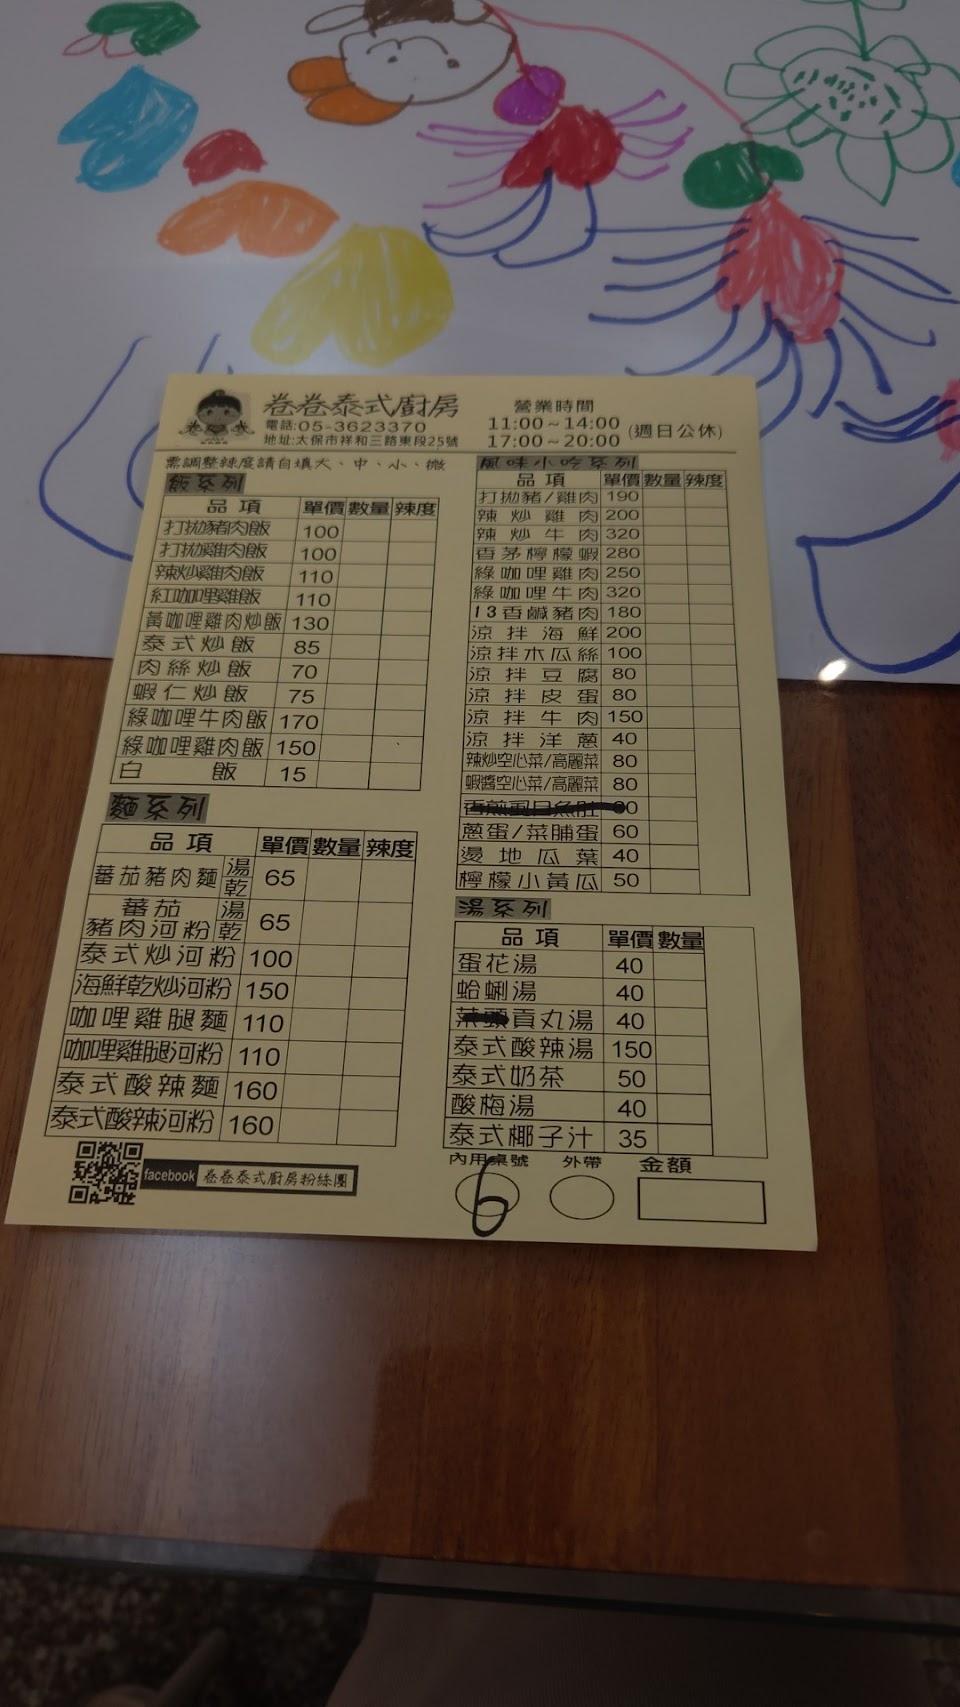 卷卷泰式廚房
電話:05-3623370
地址:太保市祥和三路東段25號
營業時間
11:00~14:00
17:00~20:00
(週日公休)
需調整辣度請自填大、中、小、微
飯系列
品項 單價 數量 辣度
打拋豬肉飯 100
打拋雞肉飯 100
辣炒雞肉飯 110
紅咖哩雞飯 110
黃咖哩雞肉炒飯 130
泰式炒飯 85
肉絲炒飯 70
蝦仁炒飯 75
綠咖哩牛肉飯 170
綠咖哩雞肉飯 150
白飯 15
麵系列
品項 單價 數量 辣度
蕃茄豬肉麵 湯 乾 65
蕃茄豬肉河粉 湯 乾 65
泰式炒河粉 100
海鮮乾炒河粉 150
咖哩雞腿麵 110
咖哩雞腿河粉 110
泰式酸辣麵 160
泰式酸辣河粉 160
facebook 卷卷泰式廚房粉絲團
風味小吃系列
品項 單價 數量 辣度
打拋豬/雞肉 190
辣炒雞肉 200
辣炒牛肉 320
香茅檸檬蝦 280
綠咖哩雞肉 250
綠咖哩牛肉 320
13香鹹豬肉 180
涼拌海鮮 200
涼拌木瓜絲 100
涼拌豆腐 80
涼拌皮蛋 80
涼拌牛肉 150
涼拌洋蔥 40
辣炒空心菜/高麗菜 80
蝦醬空心菜/高麗菜 80
香煎虱目魚肚
蔥蛋/菜脯蛋 60
燙地瓜葉 40
檸檬小黃瓜 50
湯系列
品項 單價 數量
蛋花湯 40
蛤蜊湯 40
菜頭貢丸湯 40
泰式酸辣湯 150
泰式奶茶 50
酸梅湯 40
泰式椰子汁 35
內用桌號 外帶 金額
6